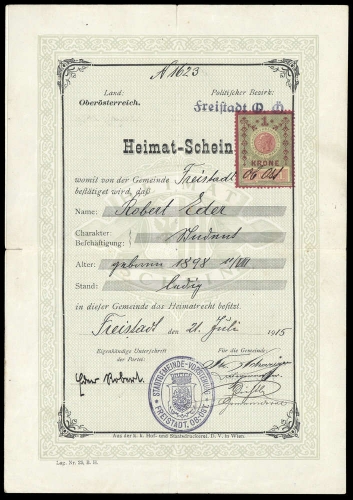 N 1623
Land:
Oberösterreich.
Politischer Bezirk:
Freistadt O. Ö.
Heimat-Schein
1
KRONE
womit von der Gemeinde Freistadt
bestätiget wird, daß
Name: Robert Eder
Charakter:
Beschäftigung: Student
Alter: geboren 1898 11/VIII
Stand: ledig
in dieser Gemeinde das Heimatrecht besitzt.
Freistadt den 21. Juli 1915
Eigenhändige Unterschrift
der Partei:
Für die Gemeinde:
Eder Robert.
STADTGEMEINDE-VORSTEHUNG
FREISTADT, OB.-ÖST.
Aus der k. k. Hof- und Staatsdruckerei. D. V. in Wien.
Lag. Nr. 25, E. G.